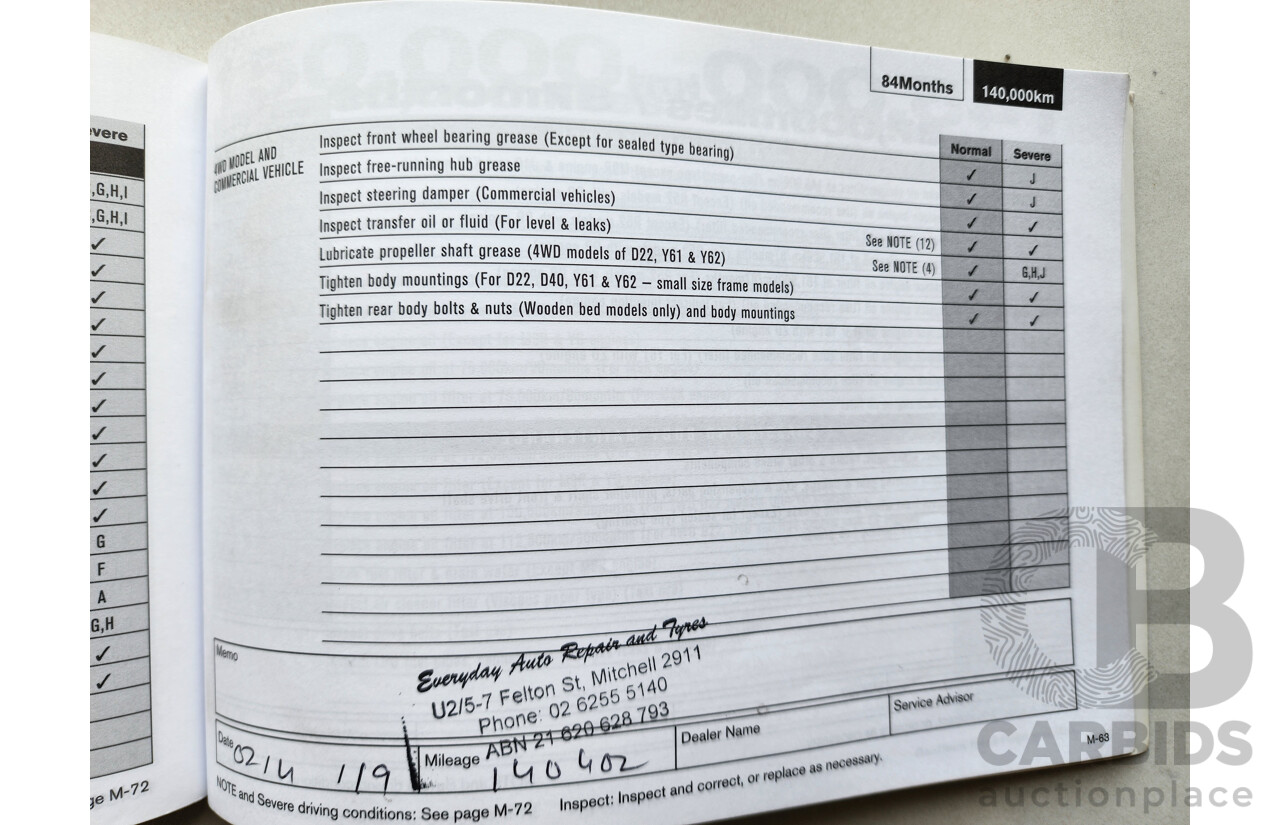 84Months 140,000km
Normal Severe
4WD MODEL AND
COMMERCIAL VEHICLE
Inspect front wheel bearing grease (Except for sealed type bearing) ✓ J
Inspect free-running hub grease ✓ J
Inspect steering damper (Commercial vehicles) ✓ ✓
Inspect transfer oil or fluid (For level & leaks) See NOTE (12) ✓ ✓
Lubricate propeller shaft grease (4WD models of D22, Y61 & Y62) See NOTE (4) ✓ G,H,J
Tighten body mountings (For D22, D40, Y61 & Y62 – small size frame models) ✓ ✓
Tighten rear body bolts & nuts (Wooden bed models only) and body mountings ✓ ✓
Memo
Everyday Auto Repair and Tyres
U2/5-7 Felton St, Mitchell 2911
Phone: 02 6255 5140
ABN 21 620 628 793
Date
Mileage 140402
Dealer Name
Service Advisor
NOTE and Severe driving conditions: See page M-72 Inspect: Inspect and correct, or replace as necessary.
M-63
vere
,G,H,I
,G,H,I
✓
✓
✓
✓
✓
✓
✓
✓
✓
✓
✓
G
F
A
G,H
✓
✓
ge M-72
CB
CARBIDS
auctionplace